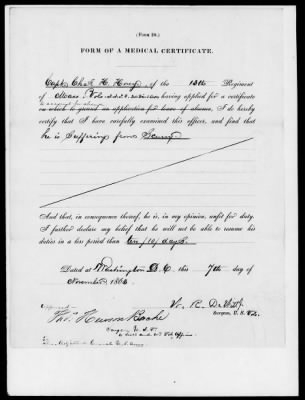 (Form 20.)
FORM OF A MEDICAL CERTIFICATE.
Capt. Chas. H. Hovey, of the 13th Regiment
of Mass. Vols. having applied for a certificate
on which to ground an application for leave of absence, I do hereby
certify that I have carefully examined this officer, and find that
he is suffering from Scurvy
And that, in consequence thereof, he is, in my opinion, unfit for duty.
I further declare my belief that he will not be able to resume his
duties in a less period than ten (10) days.
Dated at Washington D.C. this 7th day of
November 1862.
W. R. DeWitt Jr
Surgeon, U. S. Vols.
Approved
Thos. Hewson Bache
Surgeon U. S. V.